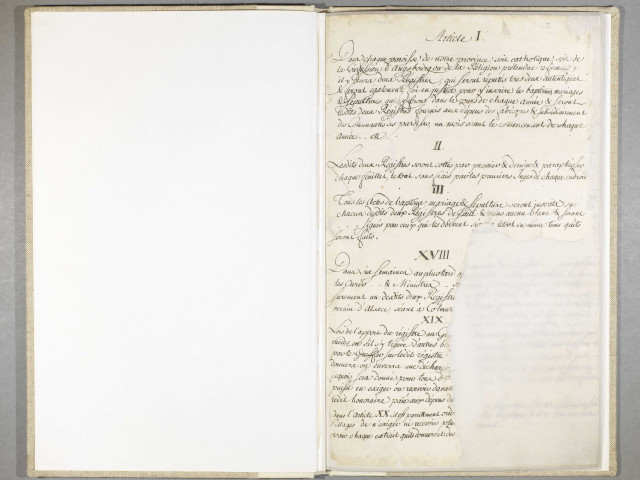 Article I.
Dans chaque paroisse de notre province, soit catholique, soit de
la Confession d'Augsbourg ou de la Religion prétendue réformée,
il y aura deux Registres, qui seront réputés tous deux autentiques
& feront également foi en justice pour y inscrire les baptêmes, mariages
& Sepultures qui se feront dans le cours de chaque année & seront
lesdits deux Registres fournis aux dépens des fabriques & subsidiairement
des Communautés des paroisses, un mois avant le commencement de chaque
année .. etc
II.
Lesdits deux Registres seront cottés par premier & dernier & paraphés sur
chaque feuillet, le tout sans frais par les premiers Juges de chaque endroit
III
Tous les Actes de baptême, mariage & sepulture seront inscrits sur
chacun desdits deux Registres de suite & sans aucun blanc & seront
signés par ceux qui les doivent en même tems qu'ils
seront faits.
XVIII.
Dans six semaines au plus tard
les Curés .. & Ministres
surement un desdits deux Registres
verain d'Alsace séant à Colmar
XIX
Lors de l'apport du régistre au
par le Greffier sur ledit régistre
donnera ou enverra une décharge
sera donné pour tous
puisse en exiger ou recevoir davan
ledit honoraire payé aux dépens de
dans l'Article XX. il est
d'exiger ni recevoir plus
pour chaque extrait qu'ils donneront des